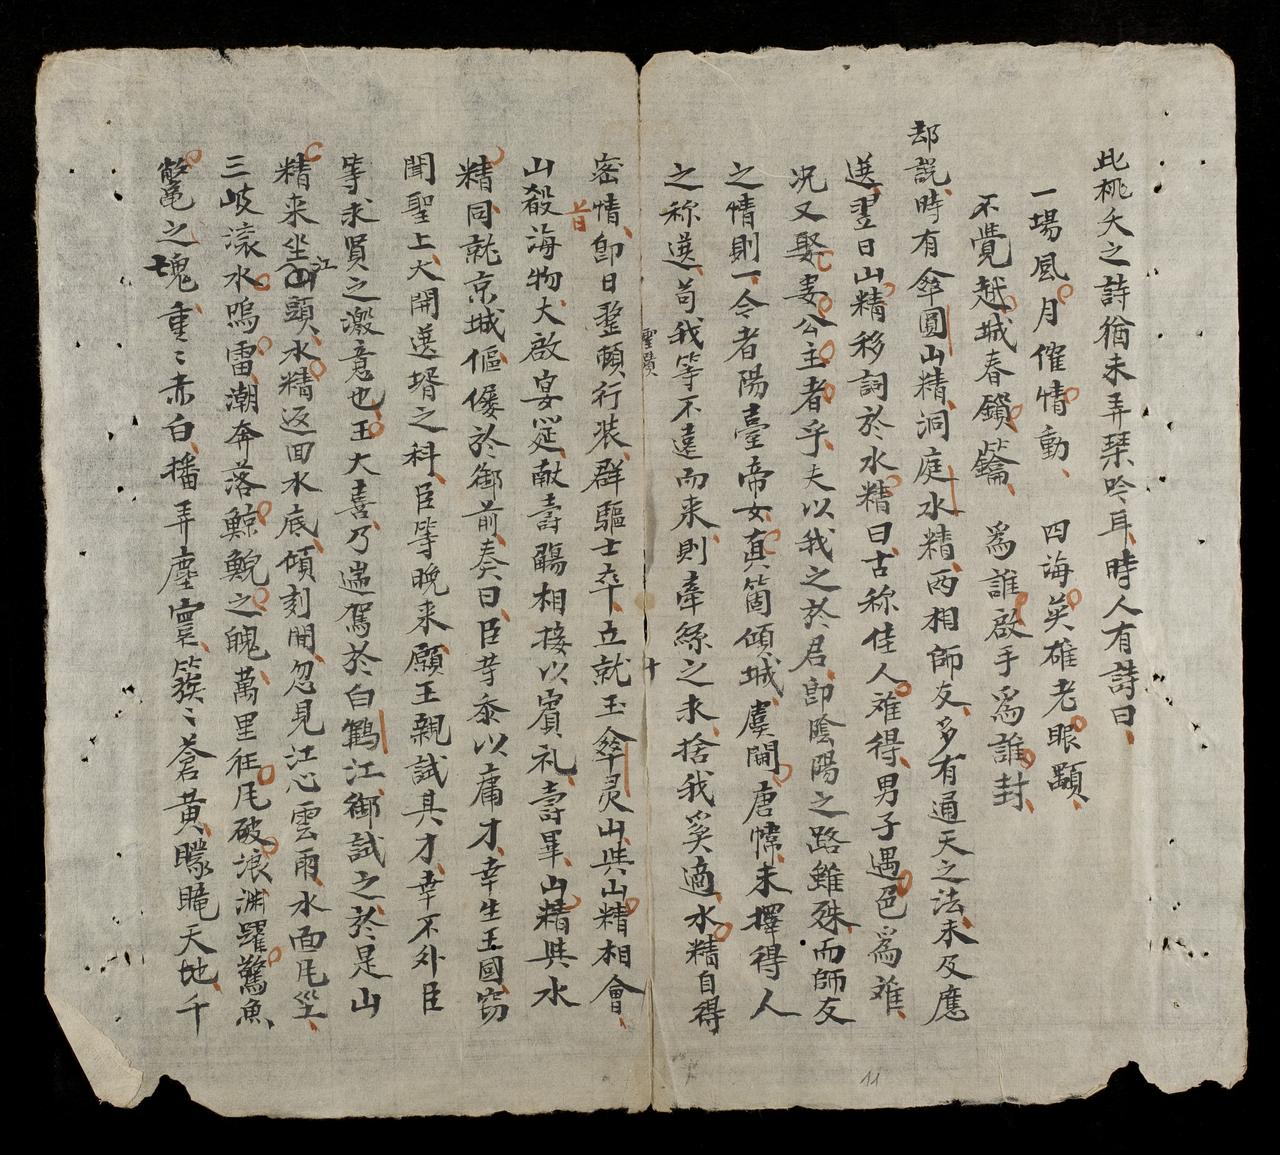 此桃夭之詩猶未弄琹吟耳時人有詩曰
一場風月催情動 四海英雄老眼顋
不覺越城春鎻鑰 爲誰啟手爲誰封
却説時有傘圓山精洞庭水精両相師友多有通天之法未及應
選翌日山精移詞於水精曰古称佳人难得男子遇色爲难
况又娶妻公主者乎夫以我之於君卽陰陽之路雖殊而師友
之情則一令者陽臺帝女真箇傾城虞閫唐幃未擇得人
之称選苟我等不遠而来則牽絲之求捨我奚適水精自得
聖蹟
十
密情卽日整頓行装群驅士卒立就玉傘灵山與山精相會
昔
山殽海物大啟宴筵献壽觴相接以賓礼壽畢山精與水
精同就京城傴僂於御前奏曰臣等忝以庸才幸生王國窃
聞聖上大開选壻之科臣等晚来願王親試其才幸不外臣
等求賢之激意也王大喜乃遄駕於白鶴江御試之於是山
精来坐江頭水精返回水底傾刻間忽見江心雲雨水面凡坐
三岐滚水鳴雷潮奔落鯨鯢之魄萬里徃凡破浪渊躍驚魚
鱉之塊重〻赤白播弄塵寰簇〻蒼黄矇曨天地千
11